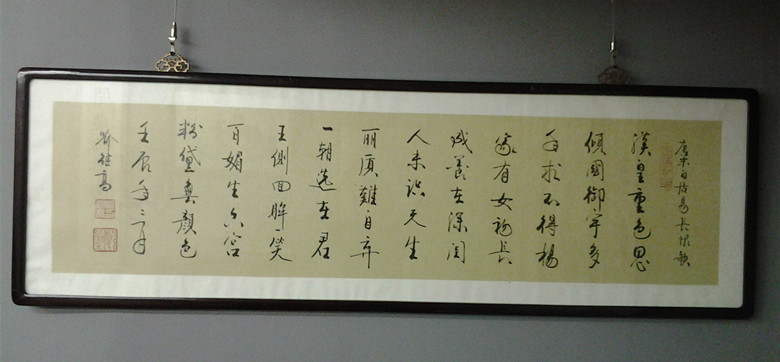 唐朝白居易长恨歌
漢皇重色思
傾國御宇多
年求不得楊
家有女初長
成養在深闺
人未识天生
丽质難自弃
一朝选在君
王側回眸一笑
百媚生六宫
粉黛無颜色
壬辰年三月